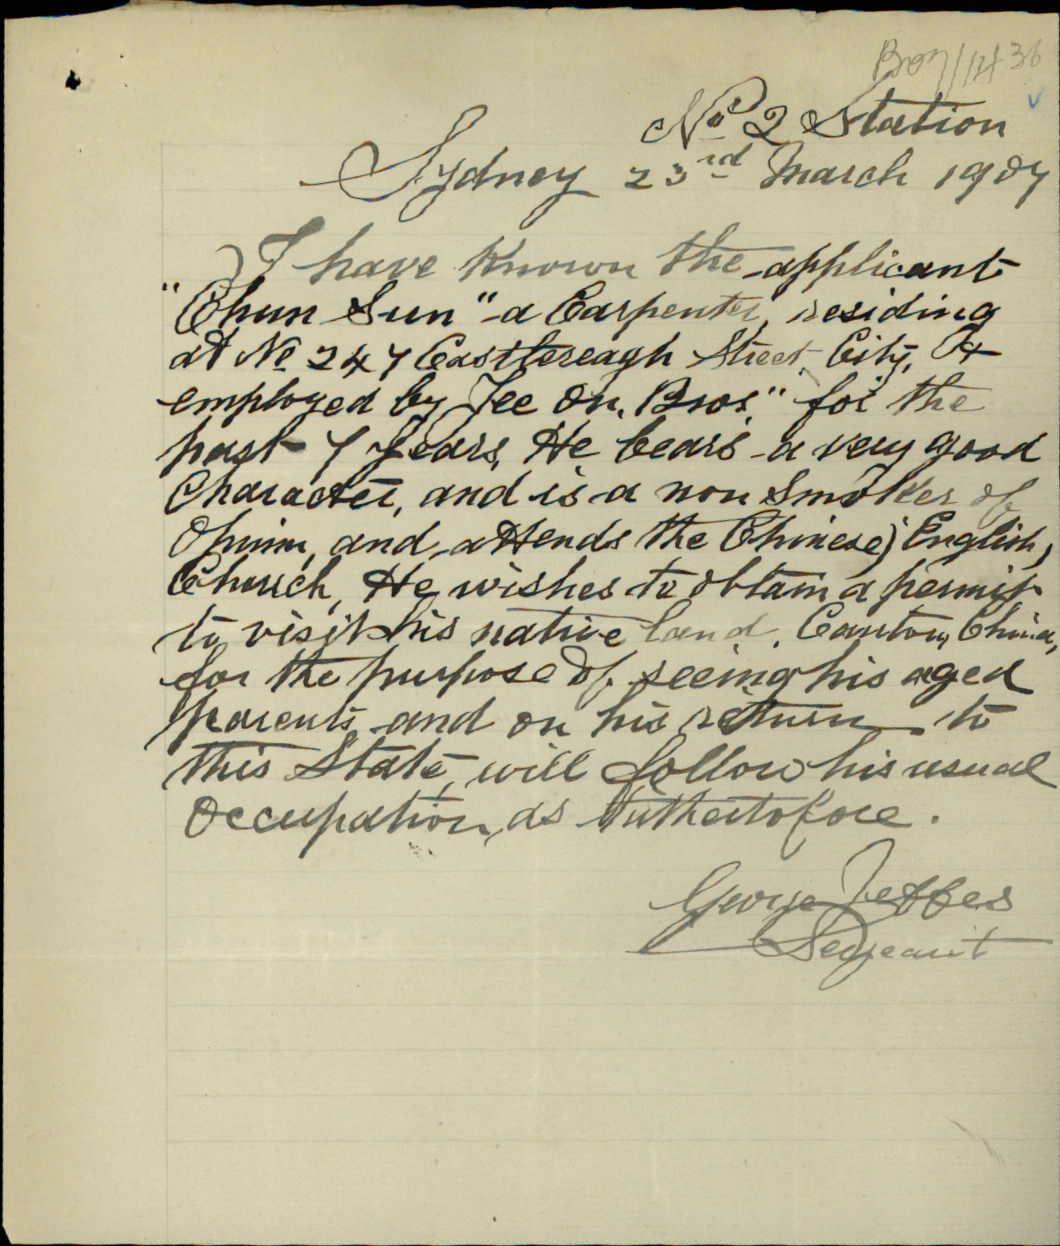 B07/1436
No 2 Station
Sydney 23rd March 1907
I have Known the applicant
"Chun Sun" a Carpenter, residing
at No 247 Castlereagh Street City, &
employed by Jee On, Bros." for the
past 7 Years, He bears a very good
Character, and is a non Smoker of
Opium, and attends the Chinese) English,
Church, He wishes to obtain a permit
to visit his native land, Canton, China,
for the purpose of seeing his aged
Parents and on his return to
this State, will follow his usual
Occupation, as huthertofore.
George Jeffes
Sergeant